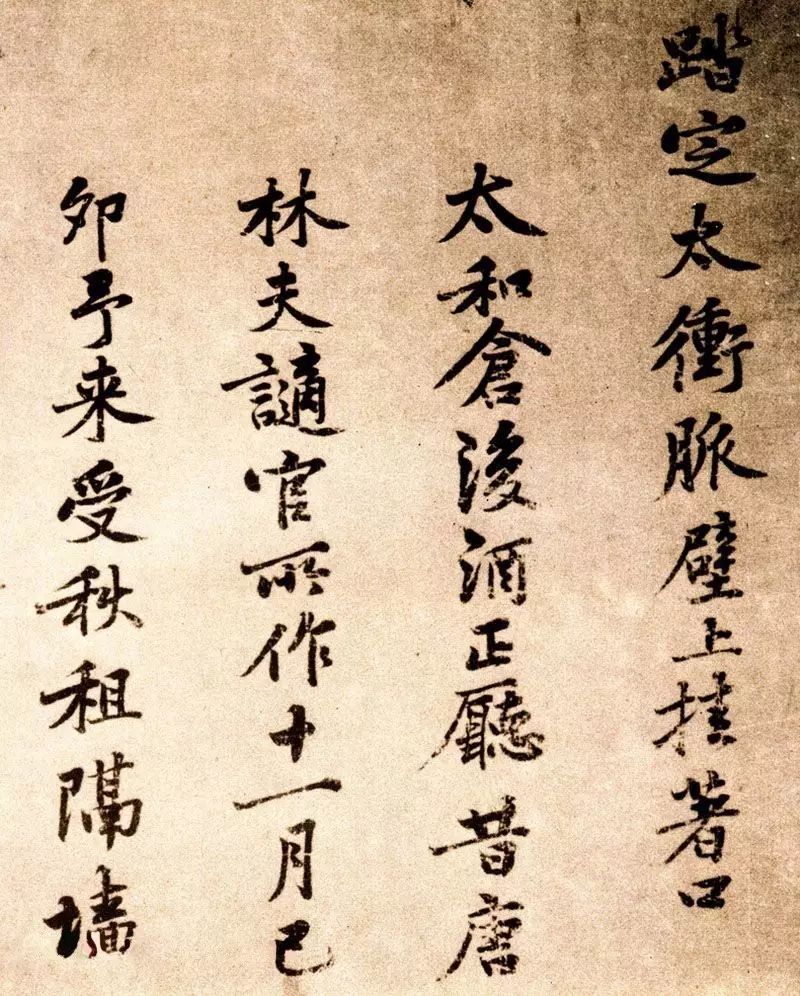 踏定太衝脈壁上挂著口
太和倉後酒正廳昔唐
林夫謫官所作十一月己
卯予来受秋租隔墙